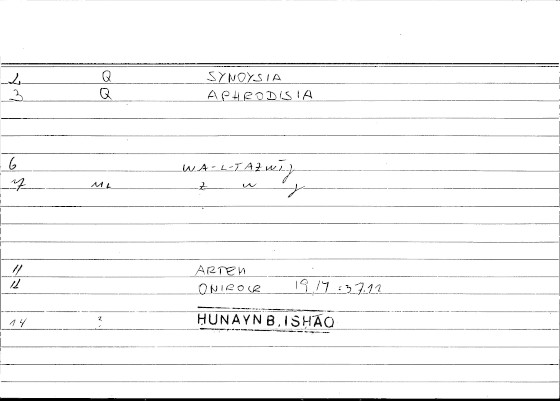 2 Q SYNOYSIA
3 Q APHRODISIA
6 WA-L-TAZWĪJ
7 ML z w j
11 ARTEM
12 ONIROCR 19,17 : 37,11
14 : HUNAYN B. ISHAQ